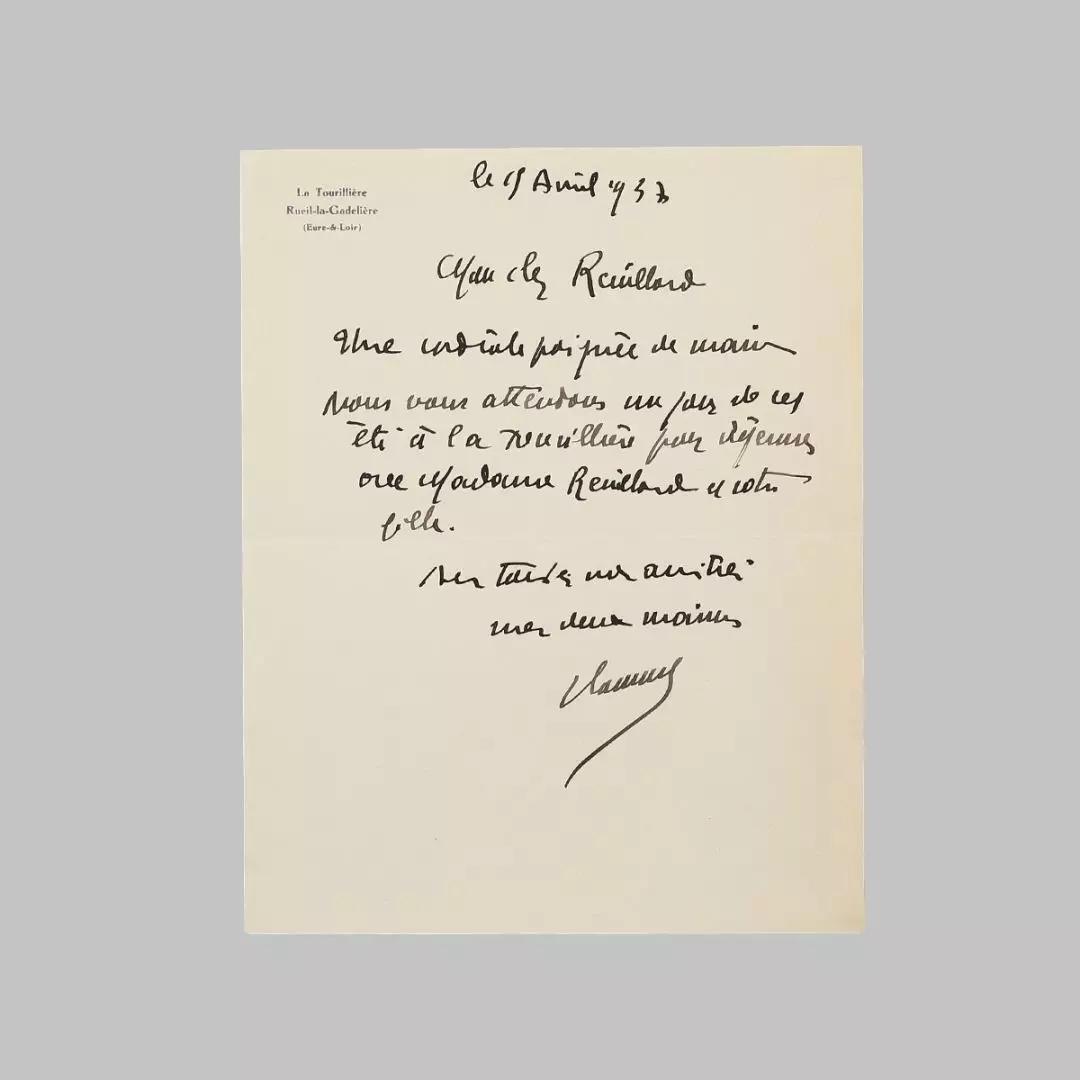 La Tourillière
Rueil-la-Gadelière
(Eure-&-Loir)
le 15 Avril 1937
Mon cher Reuillard
Une cordiale poignée de main
Nous vous attendons un jour de cet
été à la Tourillière pour déjeuner
avec Madame Reuillard et votre
fille.
nos amitiés
mes deux mains
Vlaminck